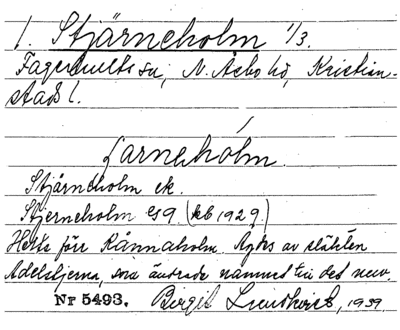 1. Stjärneholm 1/3.
Fagerhults sn, N. Åsbo hd, Kristian-
stads l.
Stjärneholm ek.
Stjerneholm (kb 1929.)
Hette förr Kånnaholm. Ägdes av släkten
Adelstjerna, som ändrade namnet till det nuv.
Nr 5493. Bergit Lundkvist, 1939